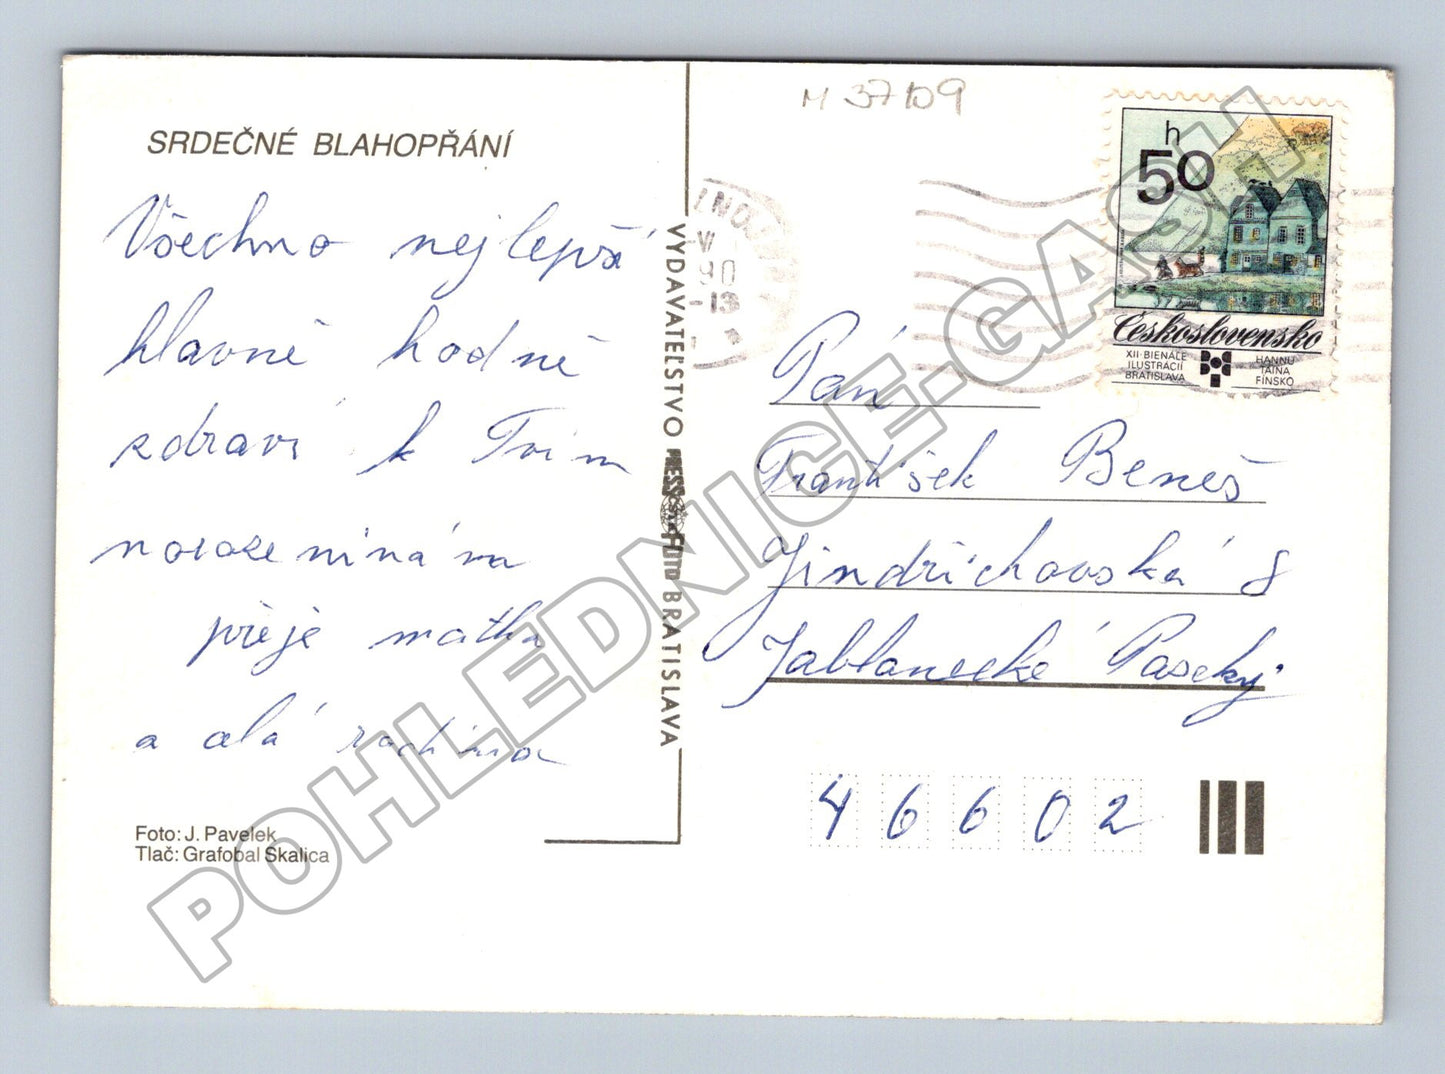 M 37109
SRDEČNÉ BLAHOPŘÁNÍ
Všechno nejlepší
hlavně hodně
zdraví k Tvím
narozeninám
přeje matka
a celá rodina
Foto: J. Pavelek
Tlač: Grafobal Skalica
VYDAVATEĽSTVO PRESSFOTO BRATISLAVA
90
-13
h
50
Československo
XII. BIENÁLE
ILUSTRÁCIÍ
BRATISLAVA
HANNU
TAINA
FÍNSKO
Pán
František Beneš
Jindřichovská 8
Jablonecké Paseky
46602
POHLEDNICE.GASH